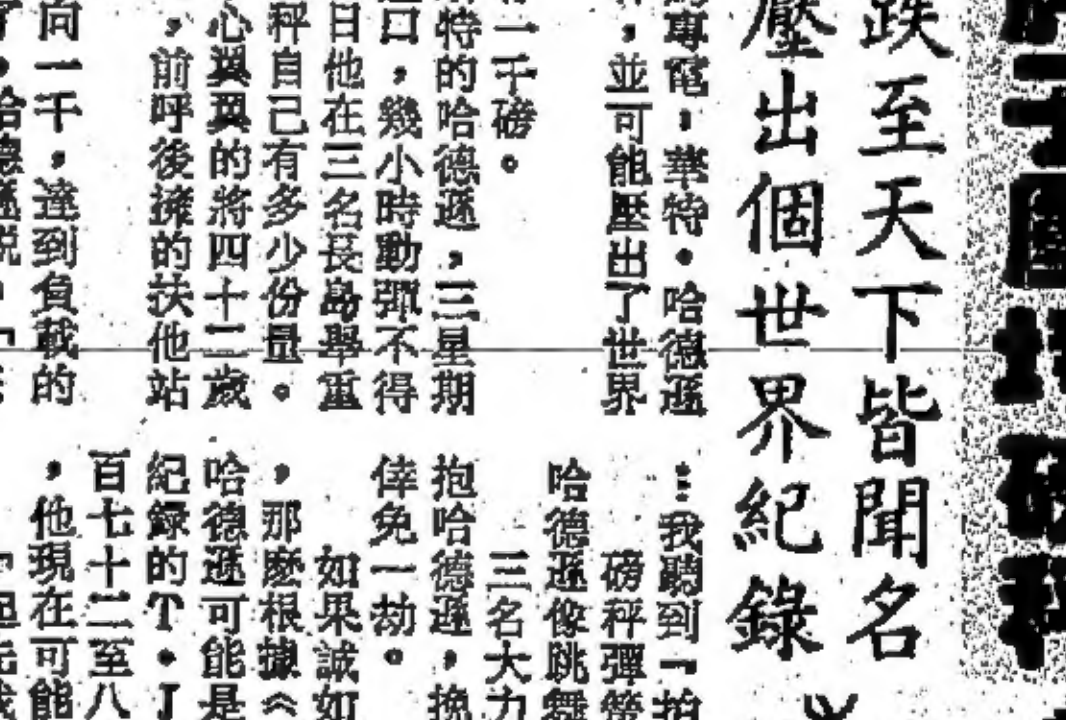 跌至天下皆聞名
壓出個世界紀錄
專電，華特·哈德遜
，並可能壓出了世界
一千磅。
特的哈德遜，三星期
口，幾小時動彈不得
日他在三名長島舉重
秤自己有多少份量。
心翼翼的將四十二歲
，前呼後擁的扶他站
向一千，達到負載的
，哈德遜說
…我聽到「拍
磅秤彈簧
哈德遜像跳舞
三名大力
抱哈德遜，挽
倖免一劫。
如果誠如
，那麽根據《
哈德遜可能是
紀錄的T·J
百七十二至八
，他現在可能